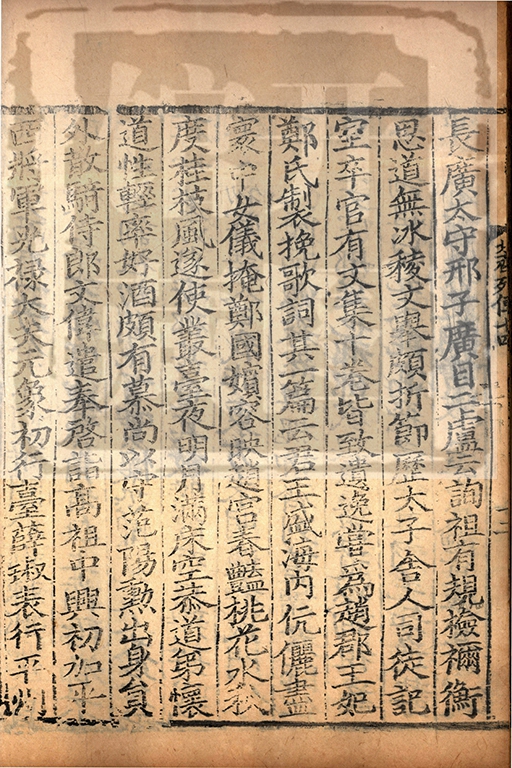 長廣太守邢子廣目二盧云詢祖有規檢禰衡
思道無冰稜文舉頗折節歷太子舍人司徒記
空卒官有文集十卷皆致遺逸嘗爲趙郡王妃
鄭氏製挽歌詞其一篇云君王盛海内伉儷盡
寰中女儀掩鄭國嬪容映趙宮春豔桃花水秋
度桂枝風遂使叢臺夜明月滿床空恭道弟懷
道性輕率好酒頗有慕尚以守范陽勳出身員
外散騎侍郎文偉遣奉啓詣高祖中興初加平
西將軍光祿大夫元象初行臺薛琡表行平州